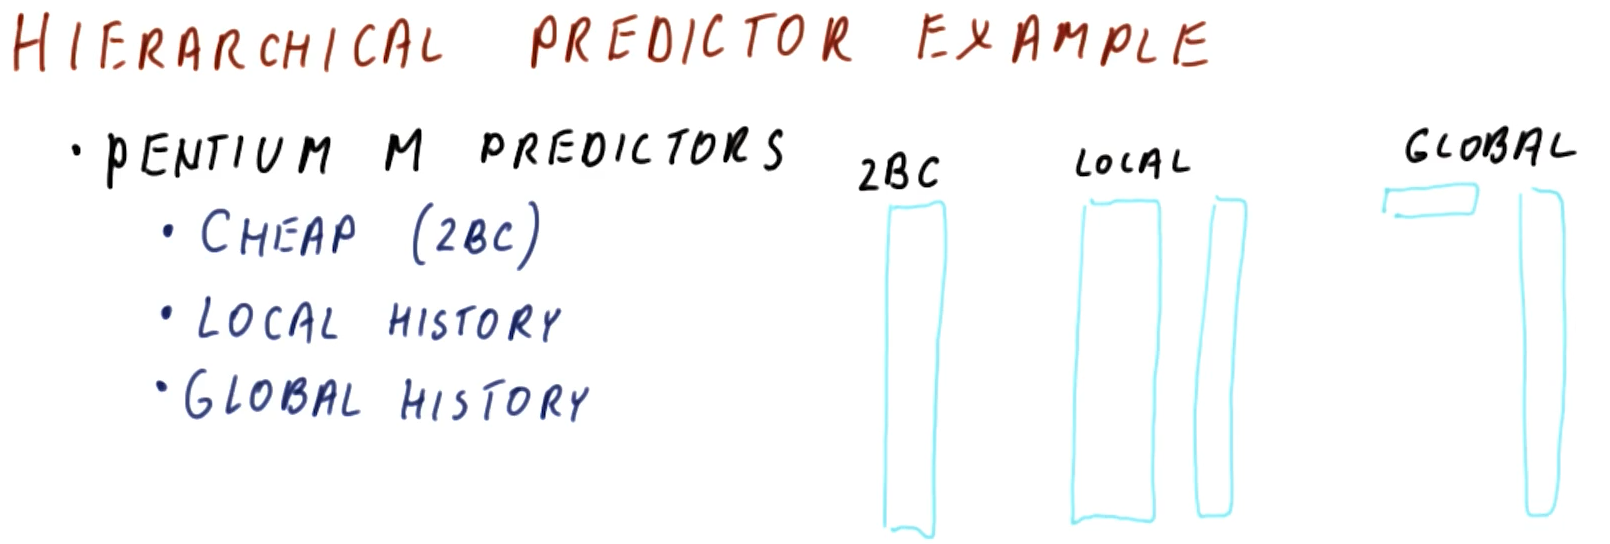 HIERARCHICAL PREDICTOR EXAMPLE
• PENTIUM M PREDICTORS
• CHEAP (2BC)
• LOCAL HISTORY
• GLOBAL HISTORY
2BC
LOCAL
GLOBAL